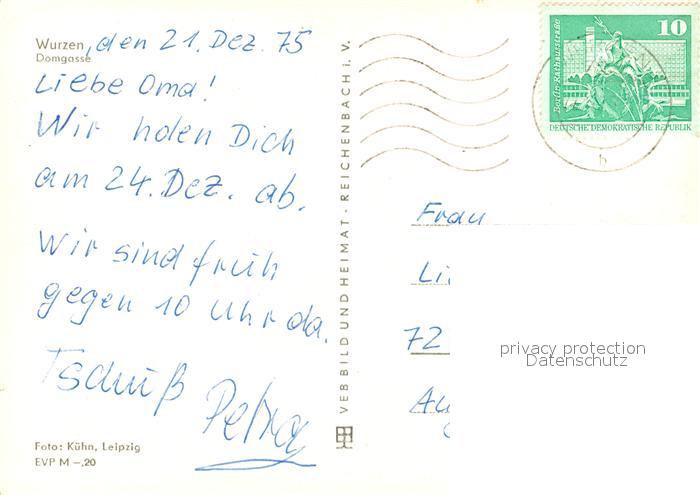 Wurzen, den 21. Dez. 75
Domgasse
Liebe Oma!
Wir holen Dich
am 24. Dez. ab.
Wir sind früh
gegen 10 Uhr da.
Tschüß Petra
Foto: Kühn, Leipzig
EVP M –,20
VEB BILD UND HEIMAT · REICHENBACH I. V.
10
Berlin, Rathausstraße
DEUTSCHE DEMOKRATISCHE REPUBLIK
b
Frau
72
privacy protection
Datenschutz